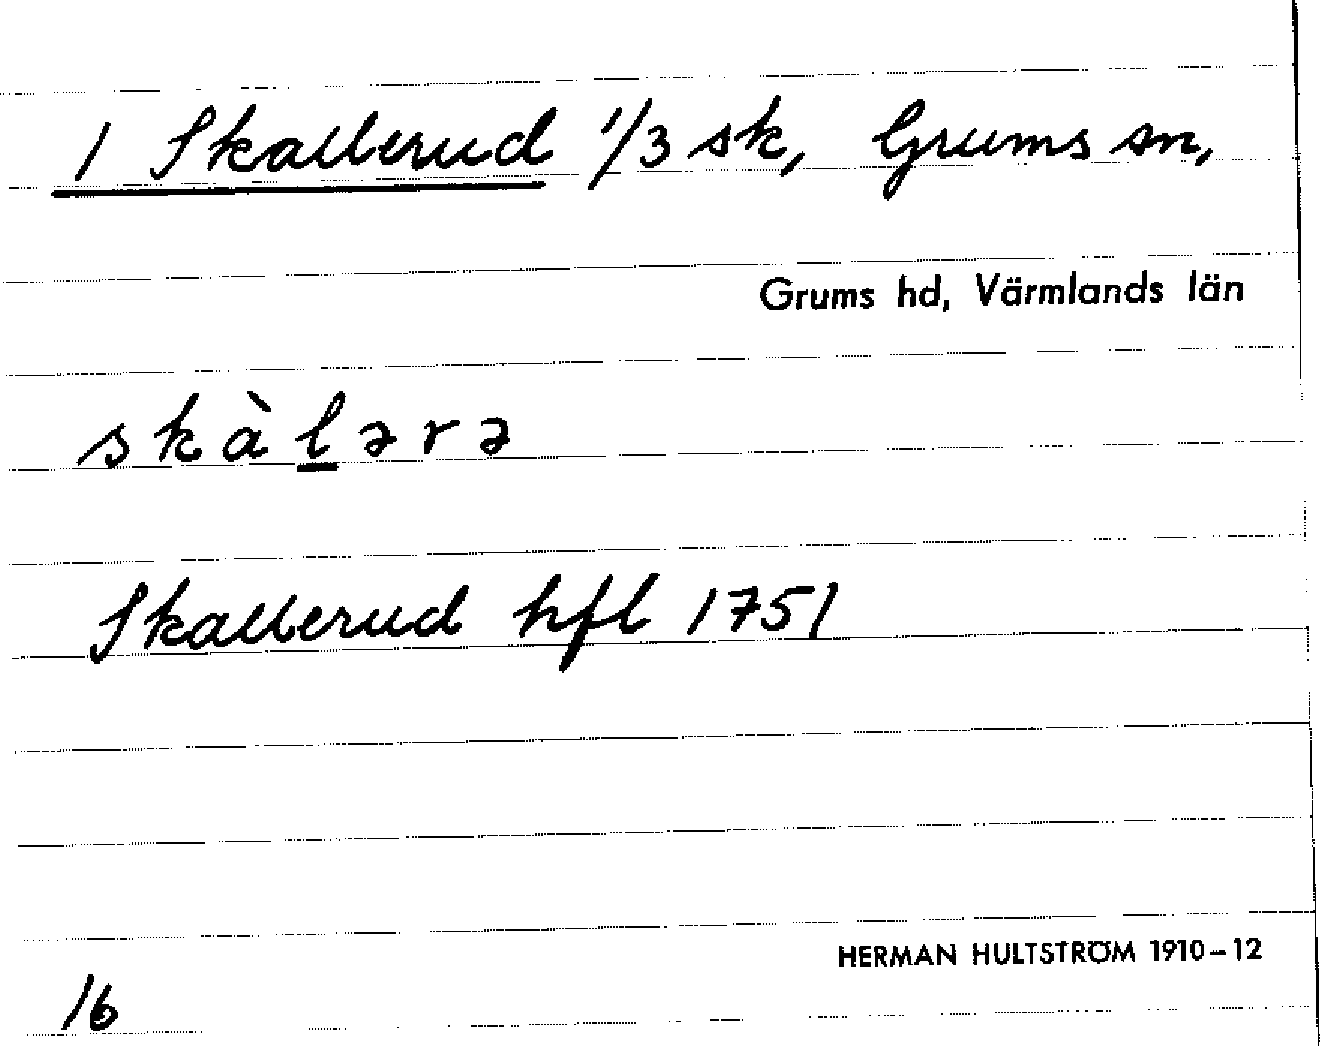 1 Skallerud 1/3 sk, Grums sn,
Grums hd, Värmlands län
skàl̲ərə
Skallerud hfl 1751
HERMAN HULTSTRÖM 1910–12
16